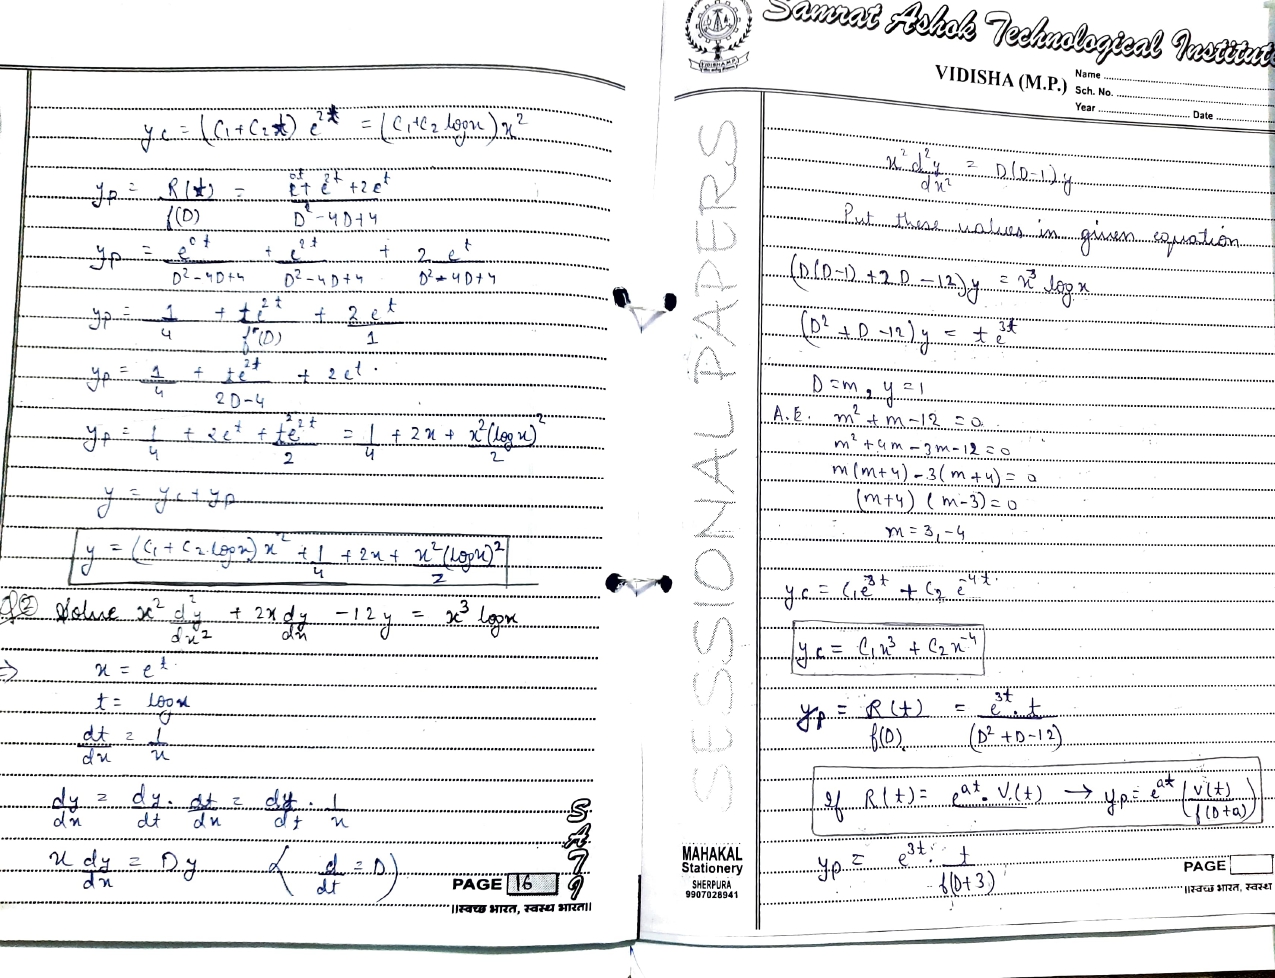 yc = (C1 + C2t) e^2t = (C1+C2 logx) x^2
yp = R(t)/f(D) = e^0t + e^2t + 2e^t / D^2 - 4D + 4
yp = e^0t/D^2-4D+4 + e^2t/D^2-4D+4 + 2 e^t/D^2-4D+4
yp = 1/4 + t e^2t/f'(D) + 2e^t/1
yp = 1/4 + te^2t/2D-4 + 2et.
yp = 1/4 + 2e^t + t^2e^2t/2 = 1/4 + 2x + x^2(logx)^2/2
y = yc + yp
y = (C1 + C2 logx) x^2 + 1/4 + 2x + x^2(logx)^2/2
Q2 Solve x^2 d^2y/dx^2 + 2x dy/dx - 12y = x^3 logx
=> x = e^t.
t = logx
dt/dx = 1/x
dy/dx = dy/dt . dt/dx = dy/dt . 1/x
x dy/dx = Dy { d/dt = D }
SATI
PAGE 16
॥स्वच्छ भारत, स्वस्थ भारत॥
SESSIONAL PAPERS
MAHAKAL
Stationery
SHERPURA
9907028941
VIDISHA M.P.
Samrat Ashok Technological Institute
VIDISHA (M.P.)
Name
Sch. No.
Year Date
x^2 d^2y/dx^2 = D(D-1)y
Put these values in given equation
(D(D-1) + 2D - 12)y = x^3 logx
(D^2 + D - 12)y = t e^3t
D = m, y = 1
A.E. m^2 + m - 12 = 0
m^2 + 4m - 3m - 12 = 0
m(m+4) - 3(m+4) = 0
(m+4) (m-3) = 0
m = 3, -4
yc = C1e^3t + C2 e^-4t.
yc = C1x^3 + C2x^-4
yp = R(t)/f(D) = e^3t . t/(D^2 + D - 12)
If R(t) = e^at . V(t) → yp = e^at (V(t)/f(D+a))
yp = e^3t . t/f(D+3)
PAGE
॥स्वच्छ भारत, स्वस्थ